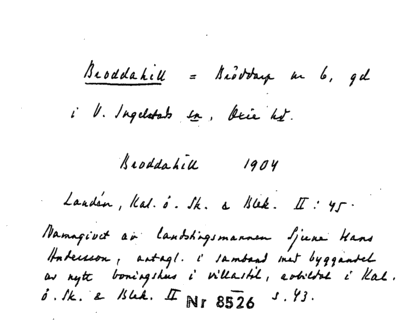 Broddahill = Bröddarp nr 6, gd
i V. Ingelstads sn, Oxie hd.
Broddahill 1904
Landén, Kal. ö. Sk. & Blek. II : 45.
Namngivet av landstingsmannen Sjune Hans
Andersson, antagl. i samband med byggandet
av nytt boningshus i villastil, avbildat i Kal.
ö. Sk. & Blek. II s. 43.
Nr 8526